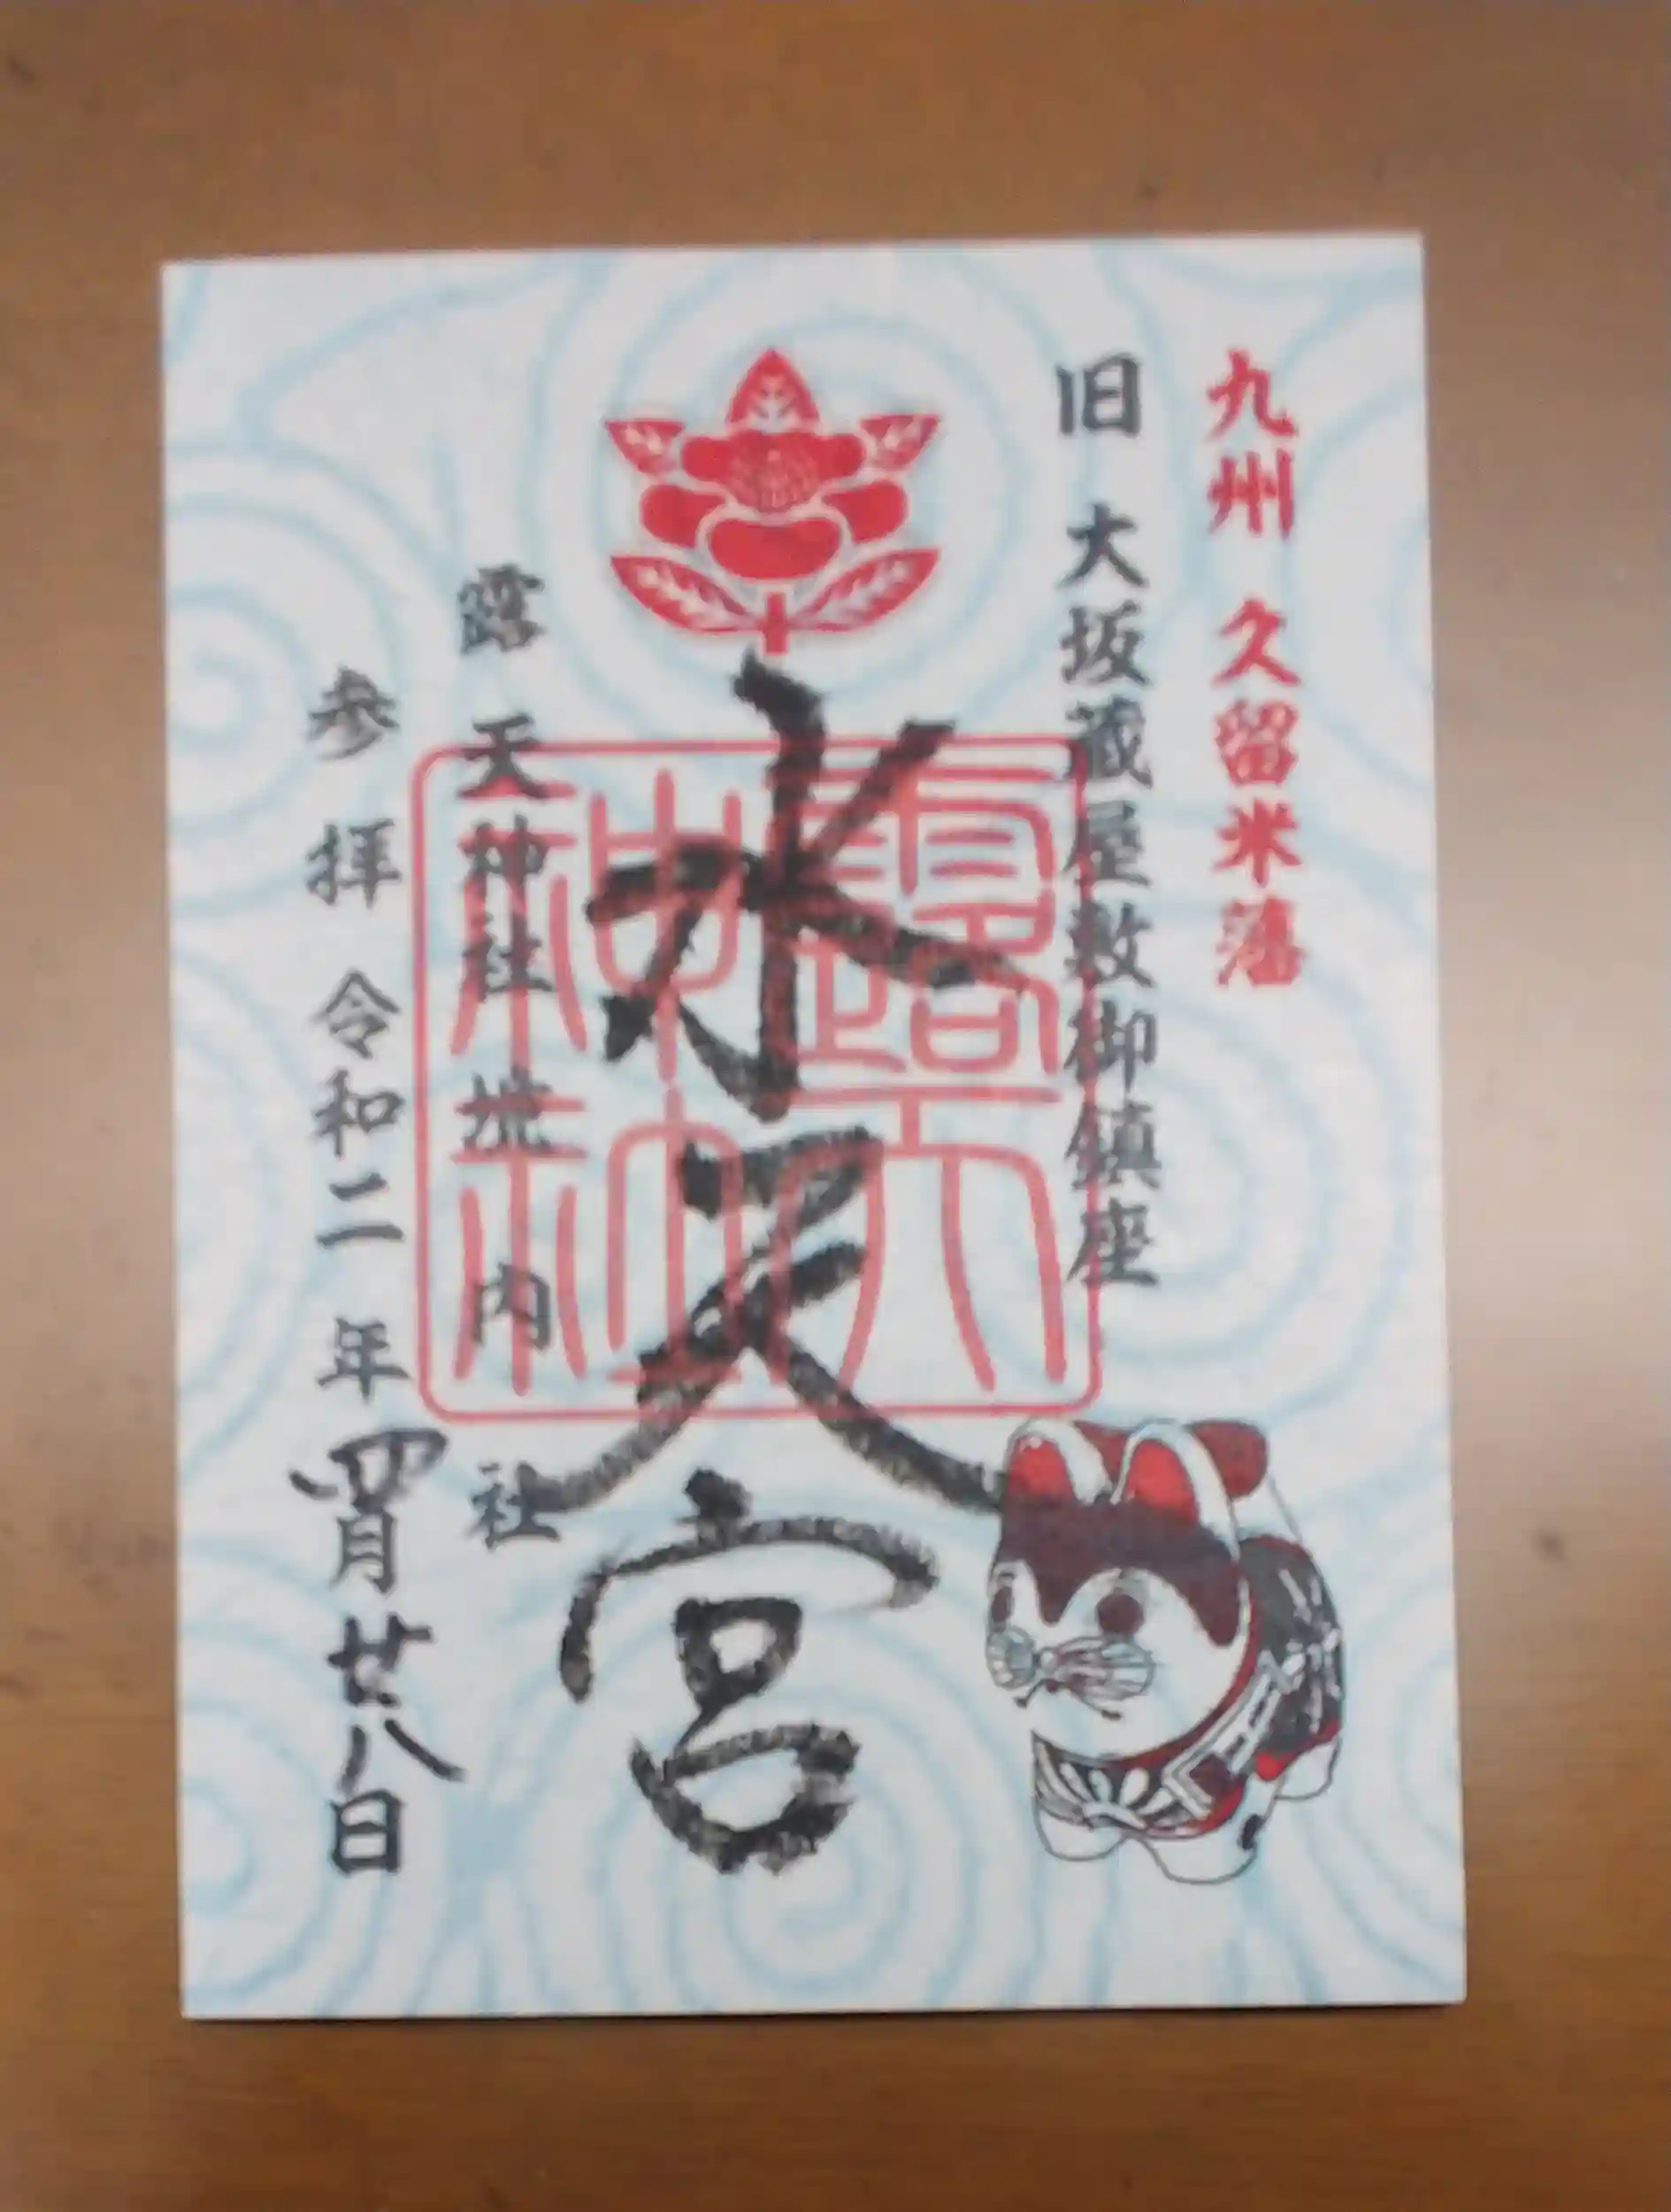 九州 久留米藩
旧 大坂蔵屋敷御鎮座
水天宮
露天神社
露 天神社境内社
参拝 令和二年四月廿八日